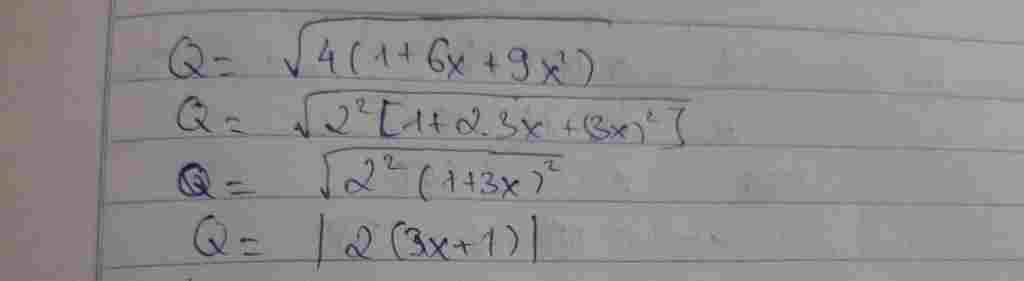 Q = √4(1+6x+9x²)
Q = √2²[1+2.3x+(3x)²]
Q = √2²(1+3x)²
Q = |2(3x+1)|